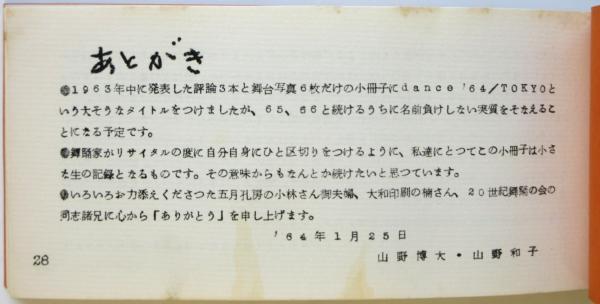 あとがき
●1963年中に発表した評論3本と舞台写真6枚だけの小冊子にdance '64/TOKYOと
いう大そうなタイトルをつけましたが、65、66と続けるうちに名前負けしない実質をそなえるこ
とになる予定です。
●舞踊家がリサイタルの度に自分自身にひと区切りをつけるように、私達にとつてこの小冊子は小さ
な生の記録となるものです。その意味からもなんとか続けたいと思つています。
●いろいろお力添えくださつた五月孔房の小林さん御夫婦、大和印刷の楠さん、20世紀舞踊の会の
同志諸兄に心から「ありがとう」を申し上げます。
'64年1月25日
山野博大・山野和子
28